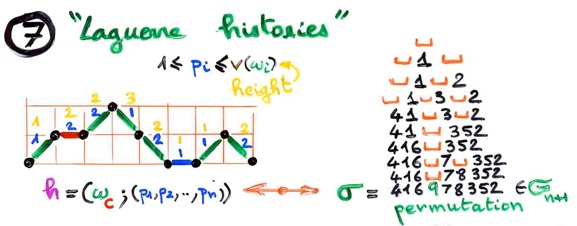 7 "Laguerre histories"
1 ≤ pi ≤ v(ωi)
height
1 2 2 3 2 1 1 2
1 2 2 1 2 1 1 2
h = (ωc ; (p1,p2,..,pn)) ↔ σ =
␣
␣ 1 ␣
␣ 1 ␣ 2
␣ 1 ␣ 3 ␣ 2
4 1 ␣ 3 ␣ 2
4 1 ␣ 3 5 2
4 1 6 ␣ 7 ␣ 3 5 2
4 1 6 ␣ 7 8 3 5 2
4 1 6 9 7 8 3 5 2 ∈ 𝔖n+1
permutation